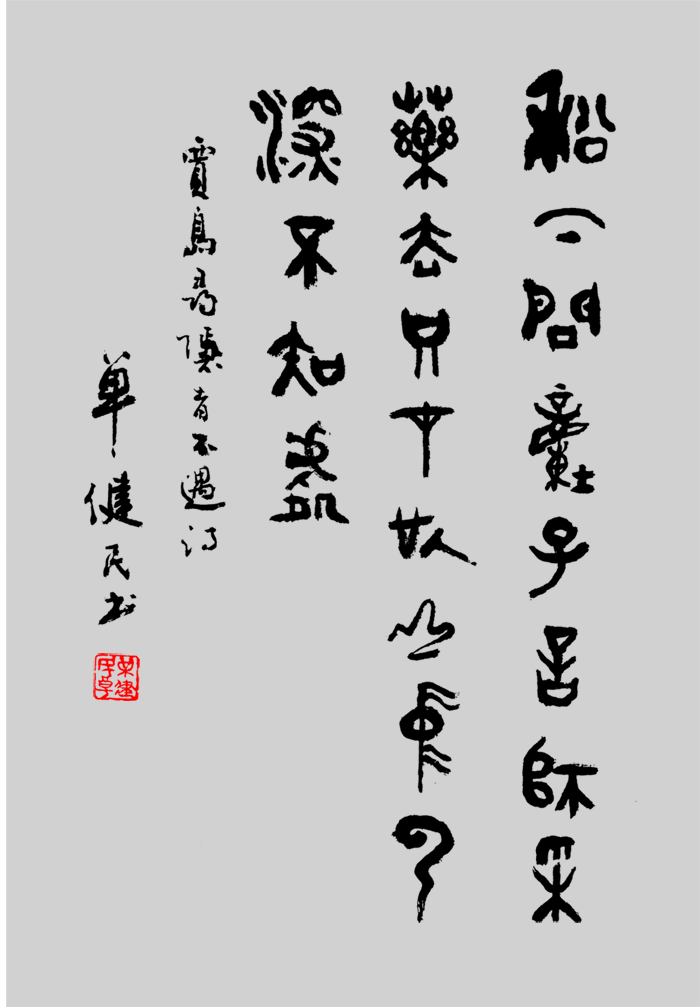 松下問童子言師采
藥去只在此山中云
深不知處
賈島尋隱者不遇詩
单健民书